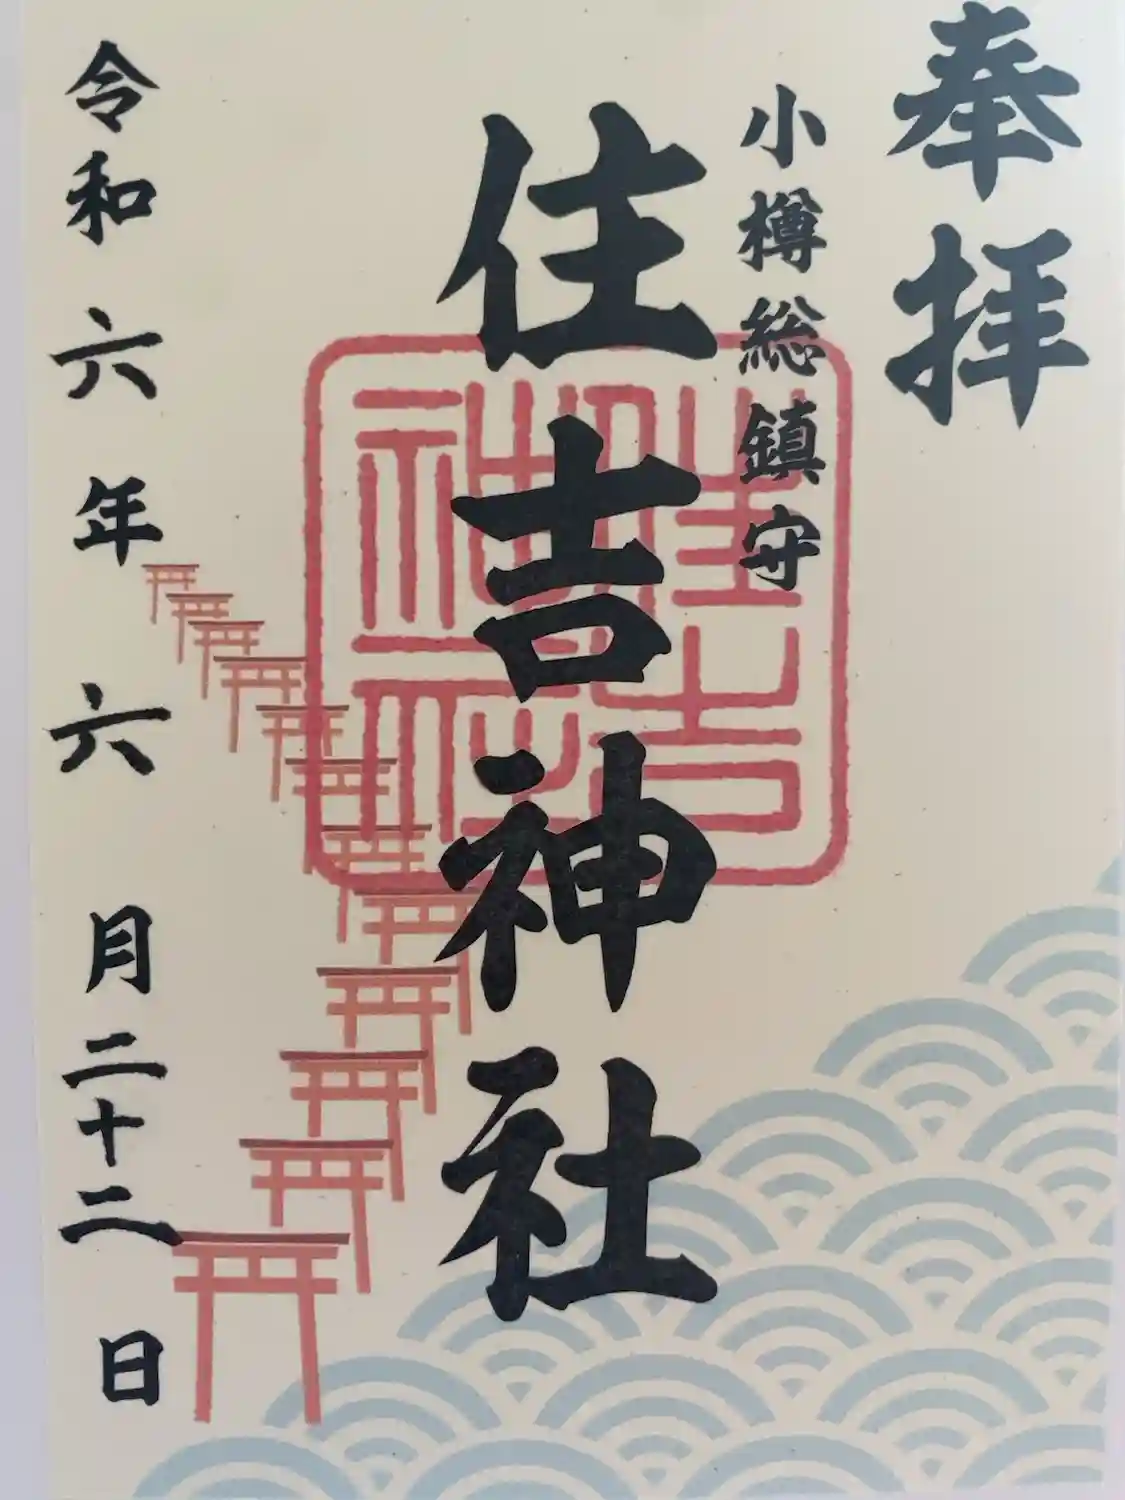 奉拝
小樽総鎮守
住吉神社
住吉
神社
令和六年六月二十二日